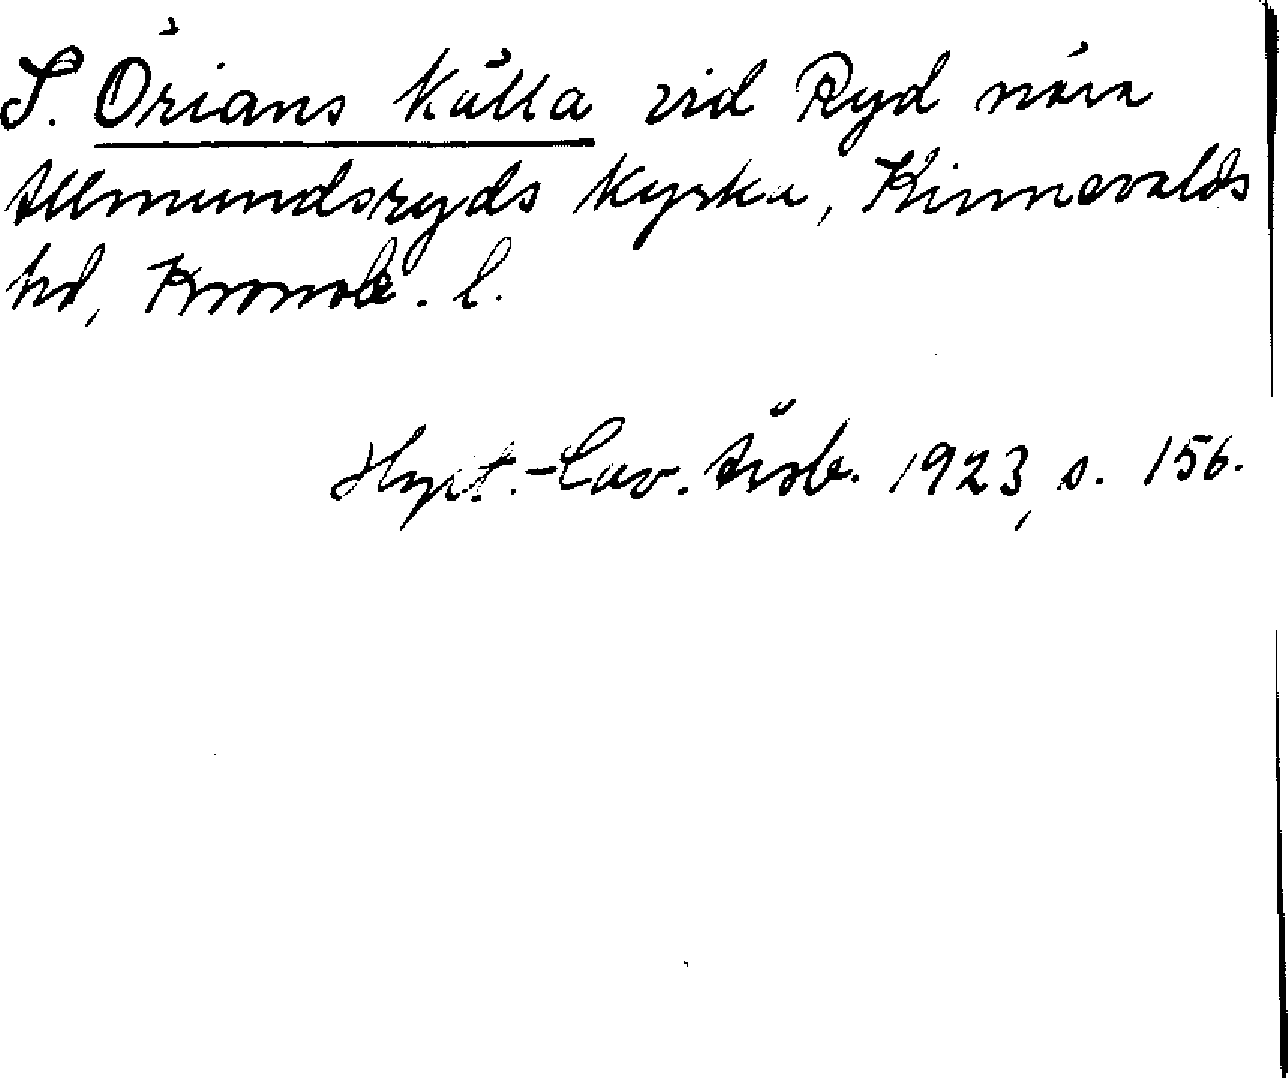 S. Örians källa vid Ryd nära
Allmundsryds kyrka, Kinnevalds
hd, Kronob. l.
Hylt.-Cav. Årsb. 1923, s. 156.